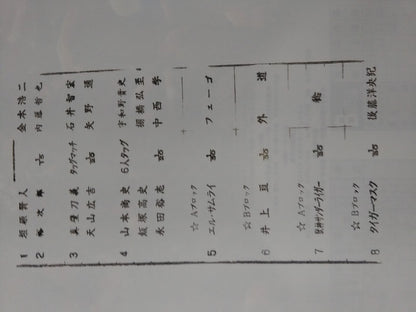 1 垣原賢人 金本浩二
2 内藤哲也
3 真壁刀義 タッグマッチ 石井智宏
天山広吉 1/30 矢野通
4 山本尚史 6人タッグ 宇和野貴史
飯塚高史 棚橋弘至
永田裕志 1/30 中西学
☆ Aブロック
5 エル・サムライ 1/30 フェーゴ
☆ Bブロック
6 井上亘 1/30 外道
☆ Aブロック
7 獣神サンダーライガー 1/30
☆ Bブロック
8 タイガーマスク 1/30 後藤洋央紀